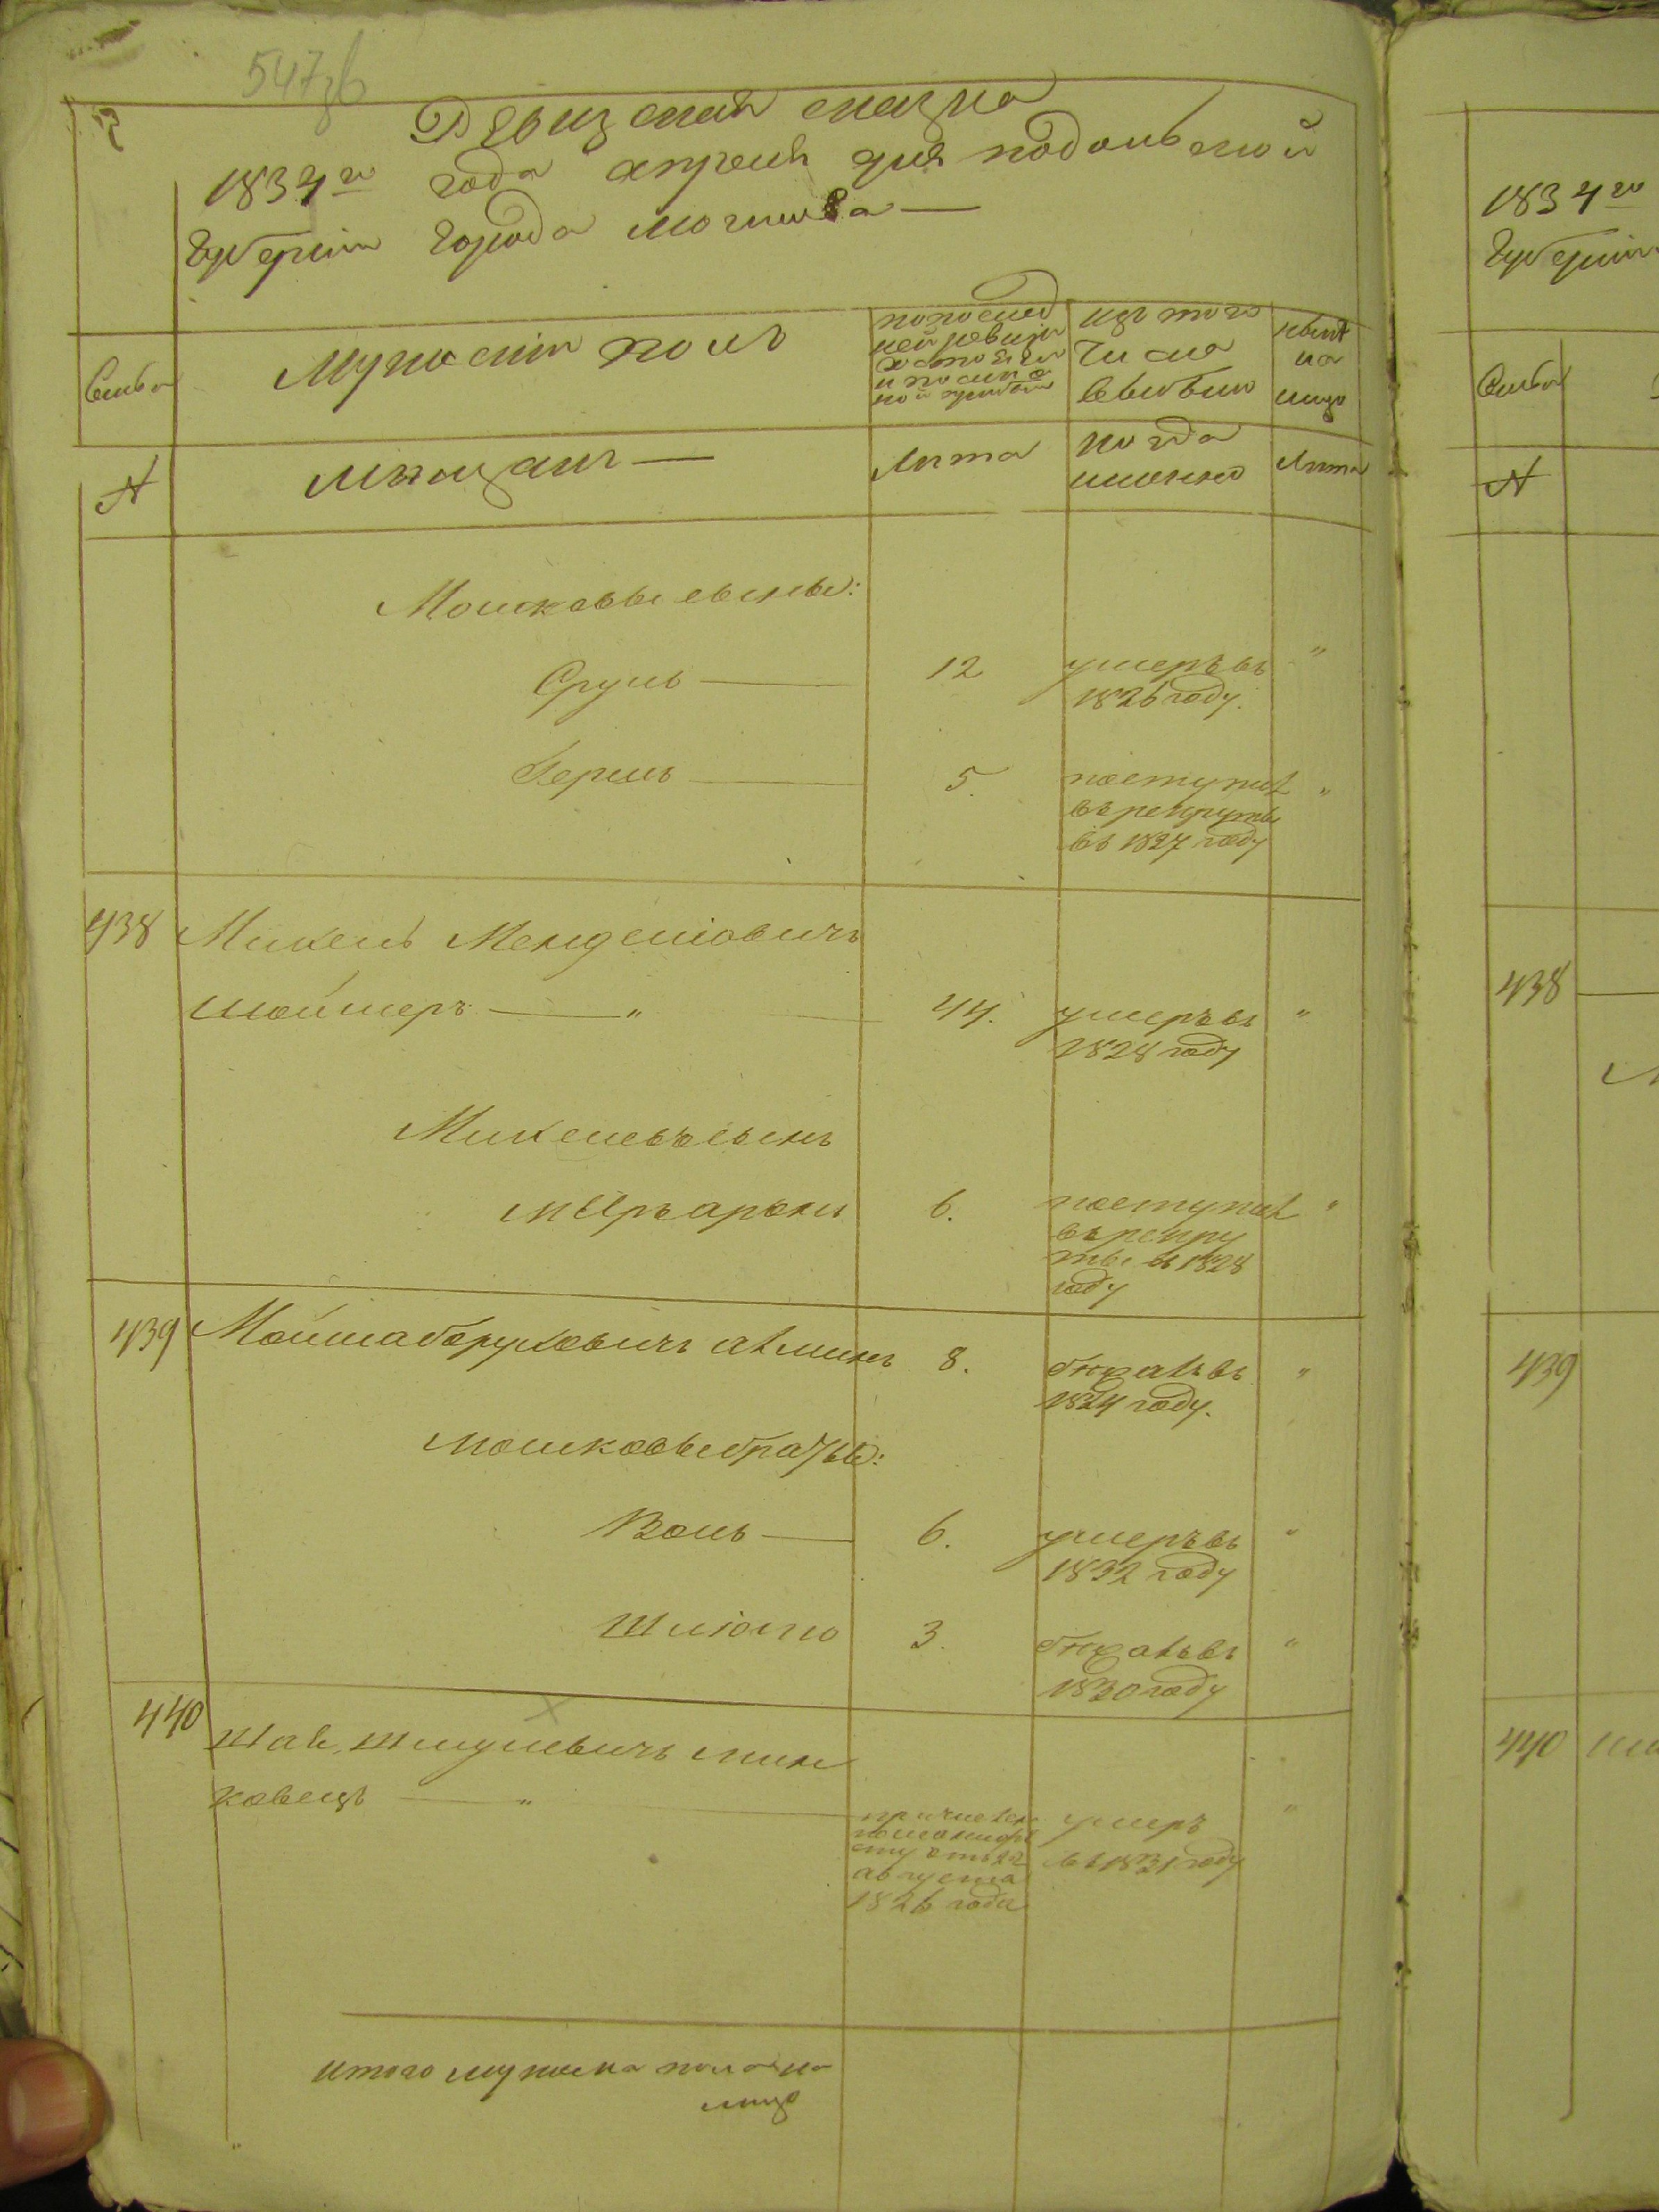 547зв
Ревизская сказка
1834го года апреля дня подольской
Губернии города могилева —
Семьи
Мужеский полъ
по послед
ней ревизіи
состояло
и после
оной прибыло
изъ того
числа
выбыло
ныне
на
лицо
№
мещане —
Лета
когда
именно
Лета
Мошковы сыны:
Сруль — 12 умеръ въ "
1826 году.
Герш — 5. поступил "
въ рекруты
въ 1827 году
438 Микель Менделіовичъ
Шоймеръ — " 44. умеръ въ "
1828 году
Микелевъ сынъ
Меир арон 6. поступил "
въ рекру
ты въ 1828
году
439 Мошка борухович 8. бежал въ "
1824 году.
мошковы братья:
Воль — 6. умеръ въ "
1832 году
Шлюмо 3. бежал въ "
1830 году
440 Шмулевичъ мин
ковецъ — " причислен умеръ "
въ 1831 году
августа
1826 года
итого мужеска пола на
лицо
1834го
Губерніи
Семьи
№
438
439
440